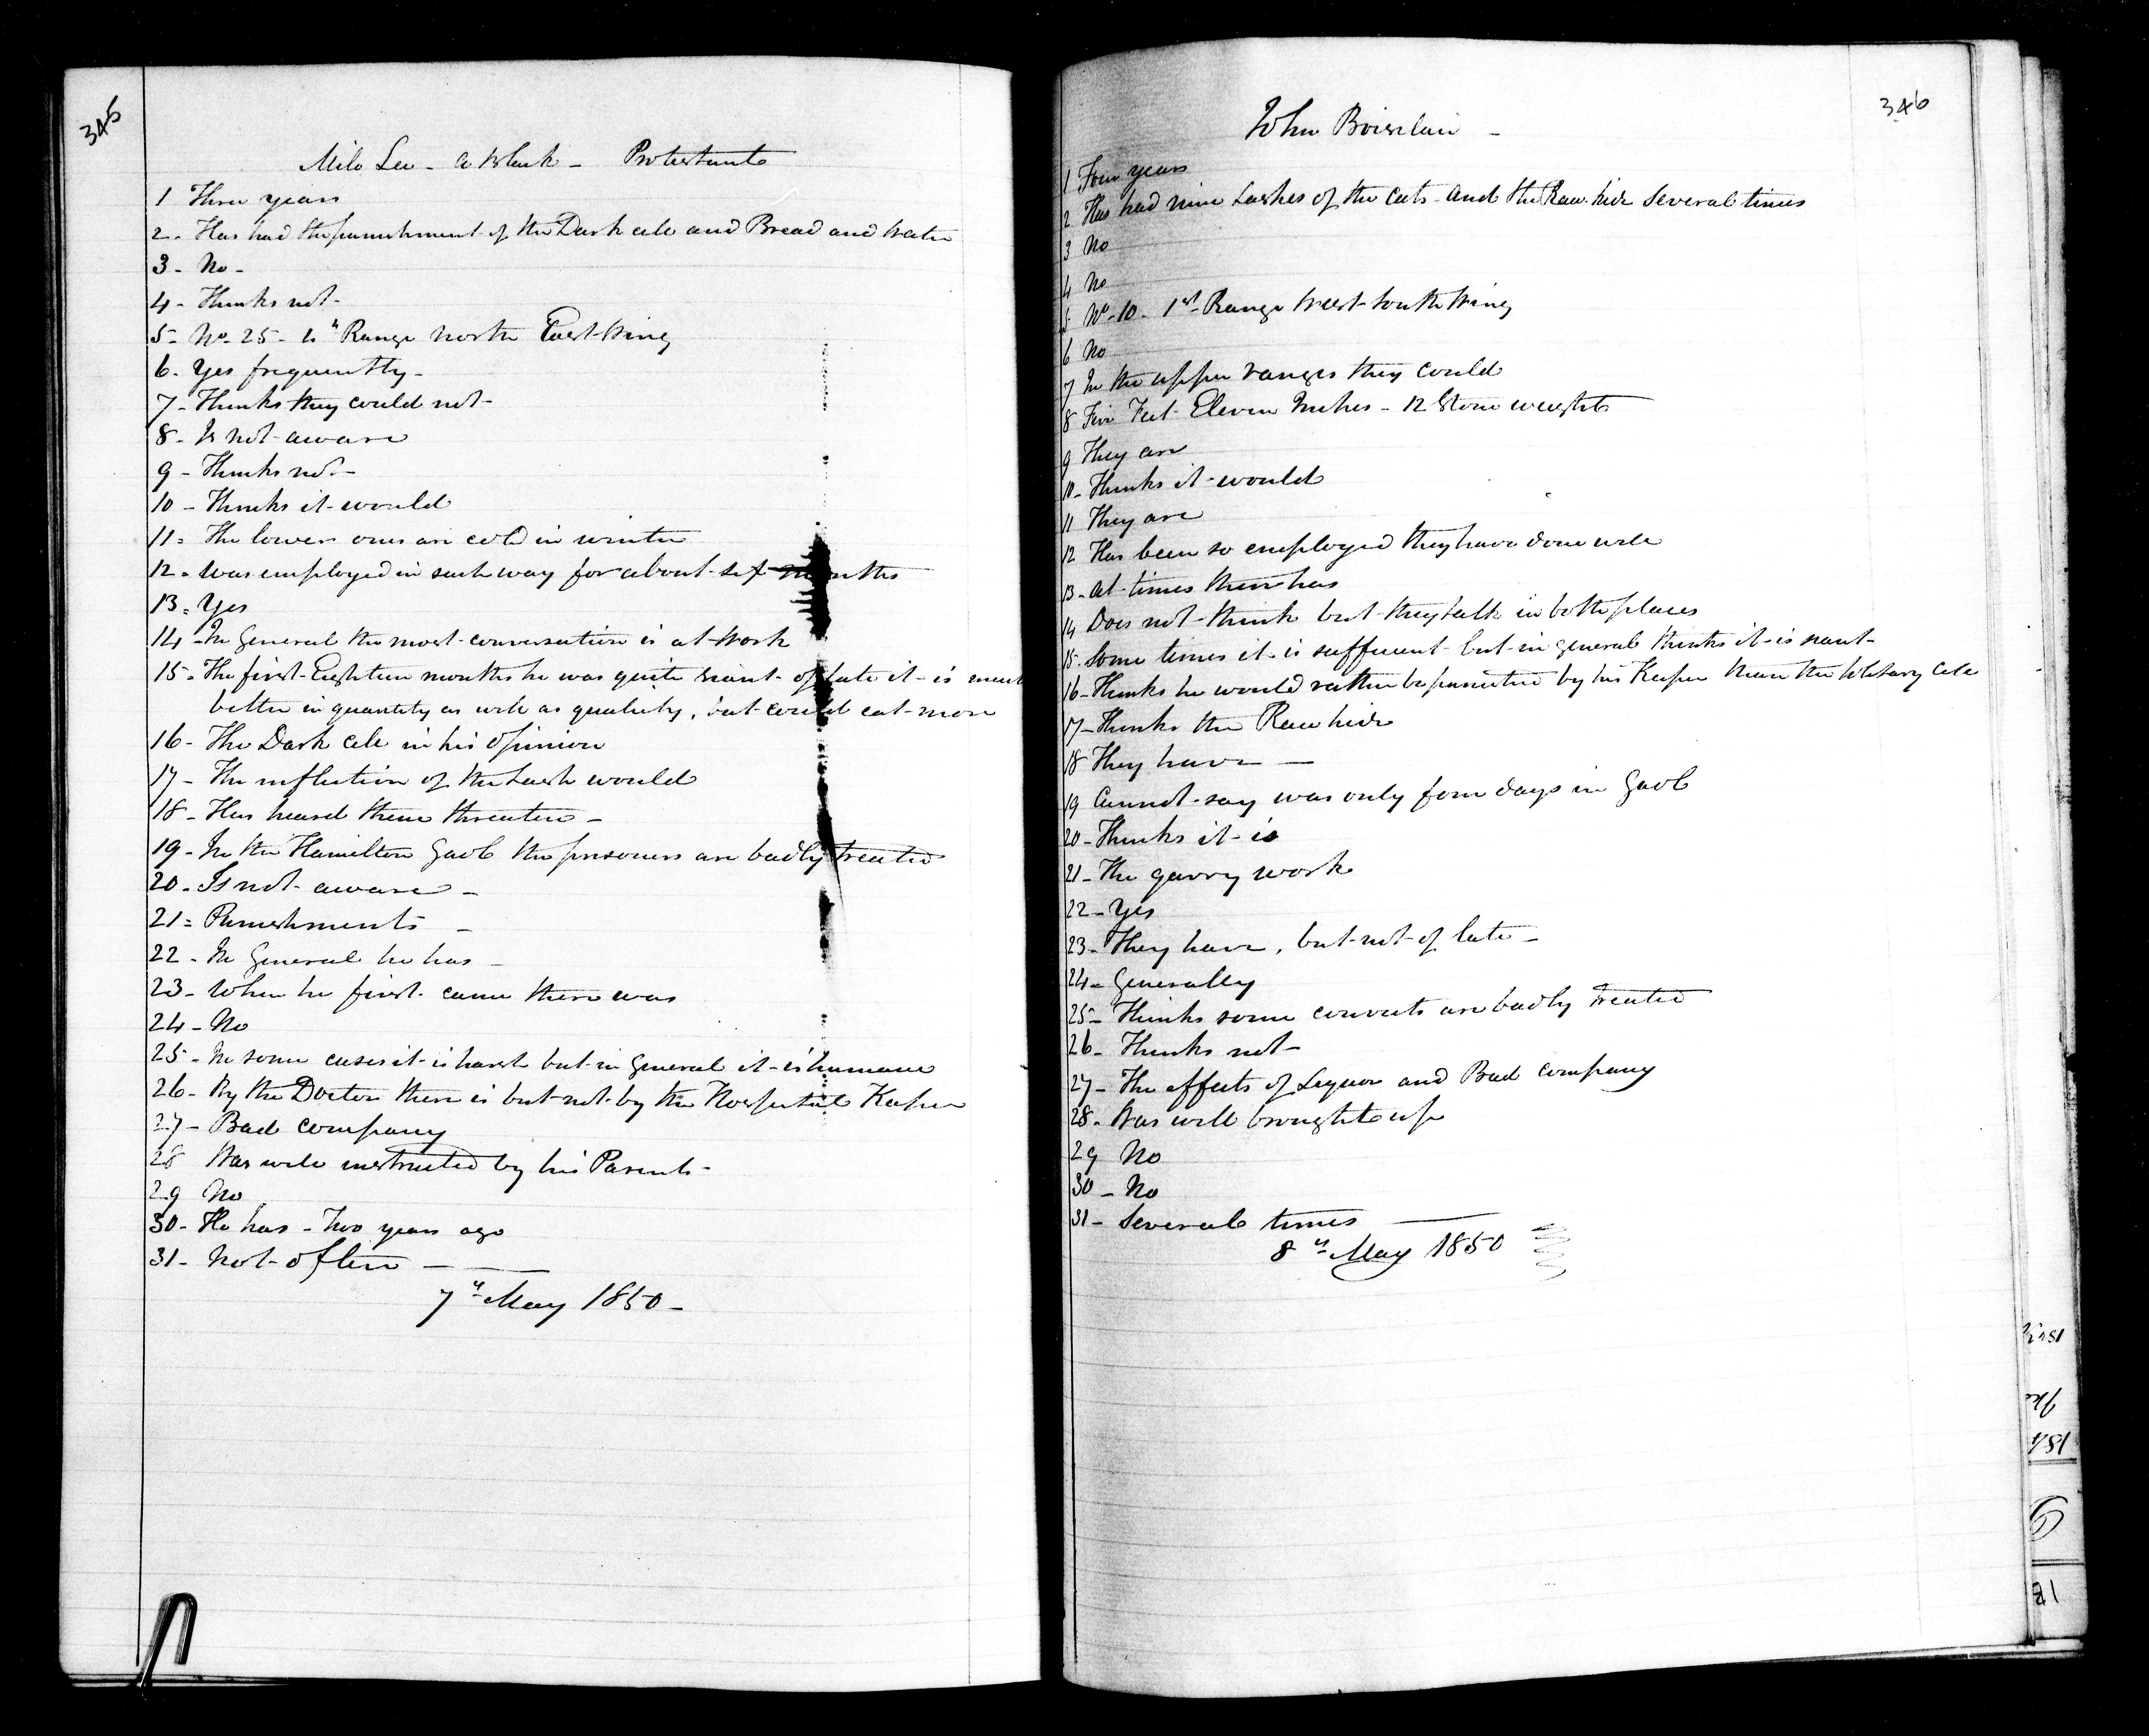 345
Milo Lee - a black - Protestant
1 Three years
2 - Has had the punishment of the Dark cell and Bread and Water
3 - No -
4 - Thinks not -
5 - No. 25 - 4th Range North East Wing
6 - Yes frequently -
7 - Thinks they could not -
8 - Is not aware
9 - Thinks not -
10 - Thinks it would
11 - The lower ones are cold in winter
12 - Was employed in such way for about six months
13 - Yes
14 - In General the most conversation is at Work
15 - The first Eighteen months he was quite scant - of late it is much
better in quantity as well as quality, but could eat more
16 - The Dark Cell in his opinion
17 - The infliction of the Lash would
18 - Has heard them threaten -
19 - In the Hamilton Gaol the prisoners are badly treated
20 - Is not aware -
21 - Punishments -
22 - In General he has -
23 - When he first came there was
24 - No
25 - In some cases it is harsh but in General it is humane
26 - By the Doctor there is but not by the Hospital Keeper
27 - Bad company
28 Was well instructed by his Parents -
29 No
30 - He has - Two years ago
31 - Not often -
7th May 1850 -
346
John Boisclair -
1 Four years
2 Has had nine Lashes of the Cats and the Raw hide Several times
3 No
4 No
5 No. 10 - 1st Range West South Wing
6 No
7 In the upper ranges they could
8 Five Feet Eleven Inches - 12 Stone weight
9 They are
10 - Thinks it would
11 They are
12 Has been so employed they have done well
13 - At times there has
14 Does not think but they talk in both places
15 - Some times it is sufficient but in general thinks it is scant -
16 - Thinks he would rather be punished by his Keeper than the Solitary Cell
17 - Thinks the Raw hide
18 They have -
19 Cannot say was only four days in Gaol
20 - Thinks it is
21 - The quarry work
22 - Yes
23 - They have, but not of late -
24 - Generally
25 - Thinks some convicts are badly treated
26 - Thinks not -
27 - The effects of Liquor and Bad company
28 - Was well brought up
29 No
30 - No
31 - Several times
8th May 1850